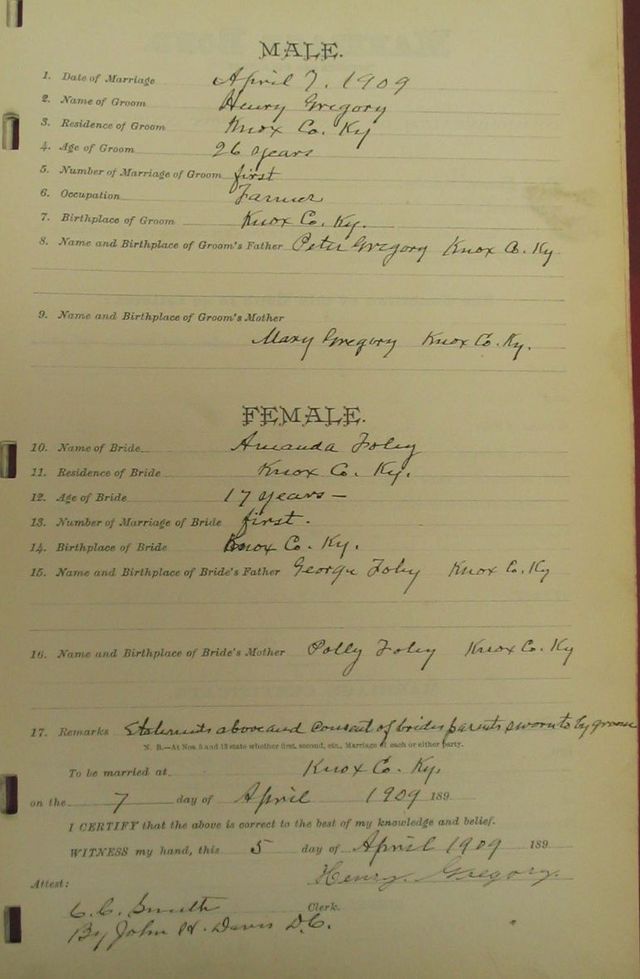 MALE.
1. Date of Marriage April 7, 1909
2. Name of Groom Henry Gregory
3. Residence of Groom Knox Co. Ky
4. Age of Groom 26 years
5. Number of Marriage of Groom first
6. Occupation Farmer
7. Birthplace of Groom Knox Co. Ky.
8. Name and Birthplace of Groom's Father Peter Gregory Knox Co. Ky
9. Name and Birthplace of Groom's Mother
Mary Gregory Knox Co. Ky.
FEMALE.
10. Name of Bride Amanda Foley
11. Residence of Bride Knox Co. Ky.
12. Age of Bride 17 years –
13. Number of Marriage of Bride first.
14. Birthplace of Bride Knox Co. Ky.
15. Name and Birthplace of Bride's Father George Foley Knox Co. Ky
16. Name and Birthplace of Bride's Mother Polly Foley Knox Co. Ky
17. Remarks Statements above and consent of brides parents sworn to by groom
N. B.—At Nos. 5 and 13 state whether first, second, etc., Marriage of each or either party.
To be married at Knox Co. Ky.
on the 7 day of April 1909 189
I CERTIFY that the above is correct to the best of my knowledge and belief.
WITNESS my hand, this 5 day of April 1909 189
Henry Gregory.
Attest:
C. C. Smith Clerk.
By John H. Davis D.C.